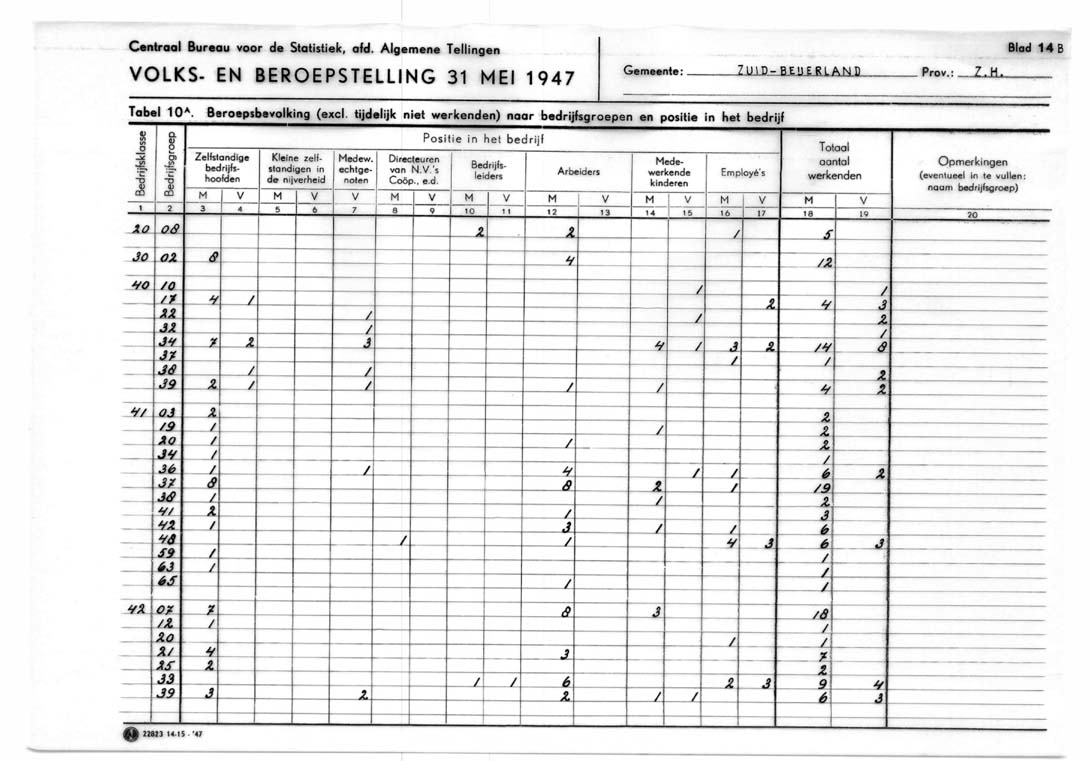 Centraal Bureau voor de Statistiek, afd. Algemene Tellingen
Blad 14 B
VOLKS- EN BEROEPSTELLING 31 MEI 1947
Gemeente: ZUID-BEIJERLAND Prov.: Z.H.
Tabel 10A. Beroepsbevolking (excl. tijdelijk niet werkenden) naar bedrijfsgroepen en positie in het bedrijf
Bedrijfsklasse Bedrijfsgroep Positie in het bedrijf Totaal aantal werkenden Opmerkingen (eventueel in te vullen: naam bedrijfsgroep)
Zelfstandige bedrijfs- hoofden Kleine zelf- standigen in de nijverheid Medew. echtge- noten Directeuren van N.V.'s Coöp., e.d. Bedrijfs- leiders Arbeiders Mede- werkende kinderen Employé's
M V M V V M V M V M V M V M V M V
1 2 3 4 5 6 7 8 9 10 11 12 13 14 15 16 17 18 19 20
20 08 2 2 1 5
30 02 8 4 12
40 10 1 1
17 4 1 2 4 3
22 1 1 2
32 1 1
34 7 2 3 4 1 3 2 14 8
37 1 1
38 1 1 2
39 2 1 1 1 1 4 2
41 03 2 2
19 1 1 2
20 1 1 2
34 1 1
36 1 1 4 1 1 6 2
37 8 8 2 1 19
38 1 1 2
41 2 1 3
42 1 3 1 1 6
48 1 1 4 3 6 3
59 1 1
63 1 1
65 1 1
42 07 7 8 3 18
12 1 1
20 1 1
21 4 3 7
25 2 2
33 1 1 6 2 3 9 4
39 3 2 2 1 1 6 3
22823 14-15 - '47